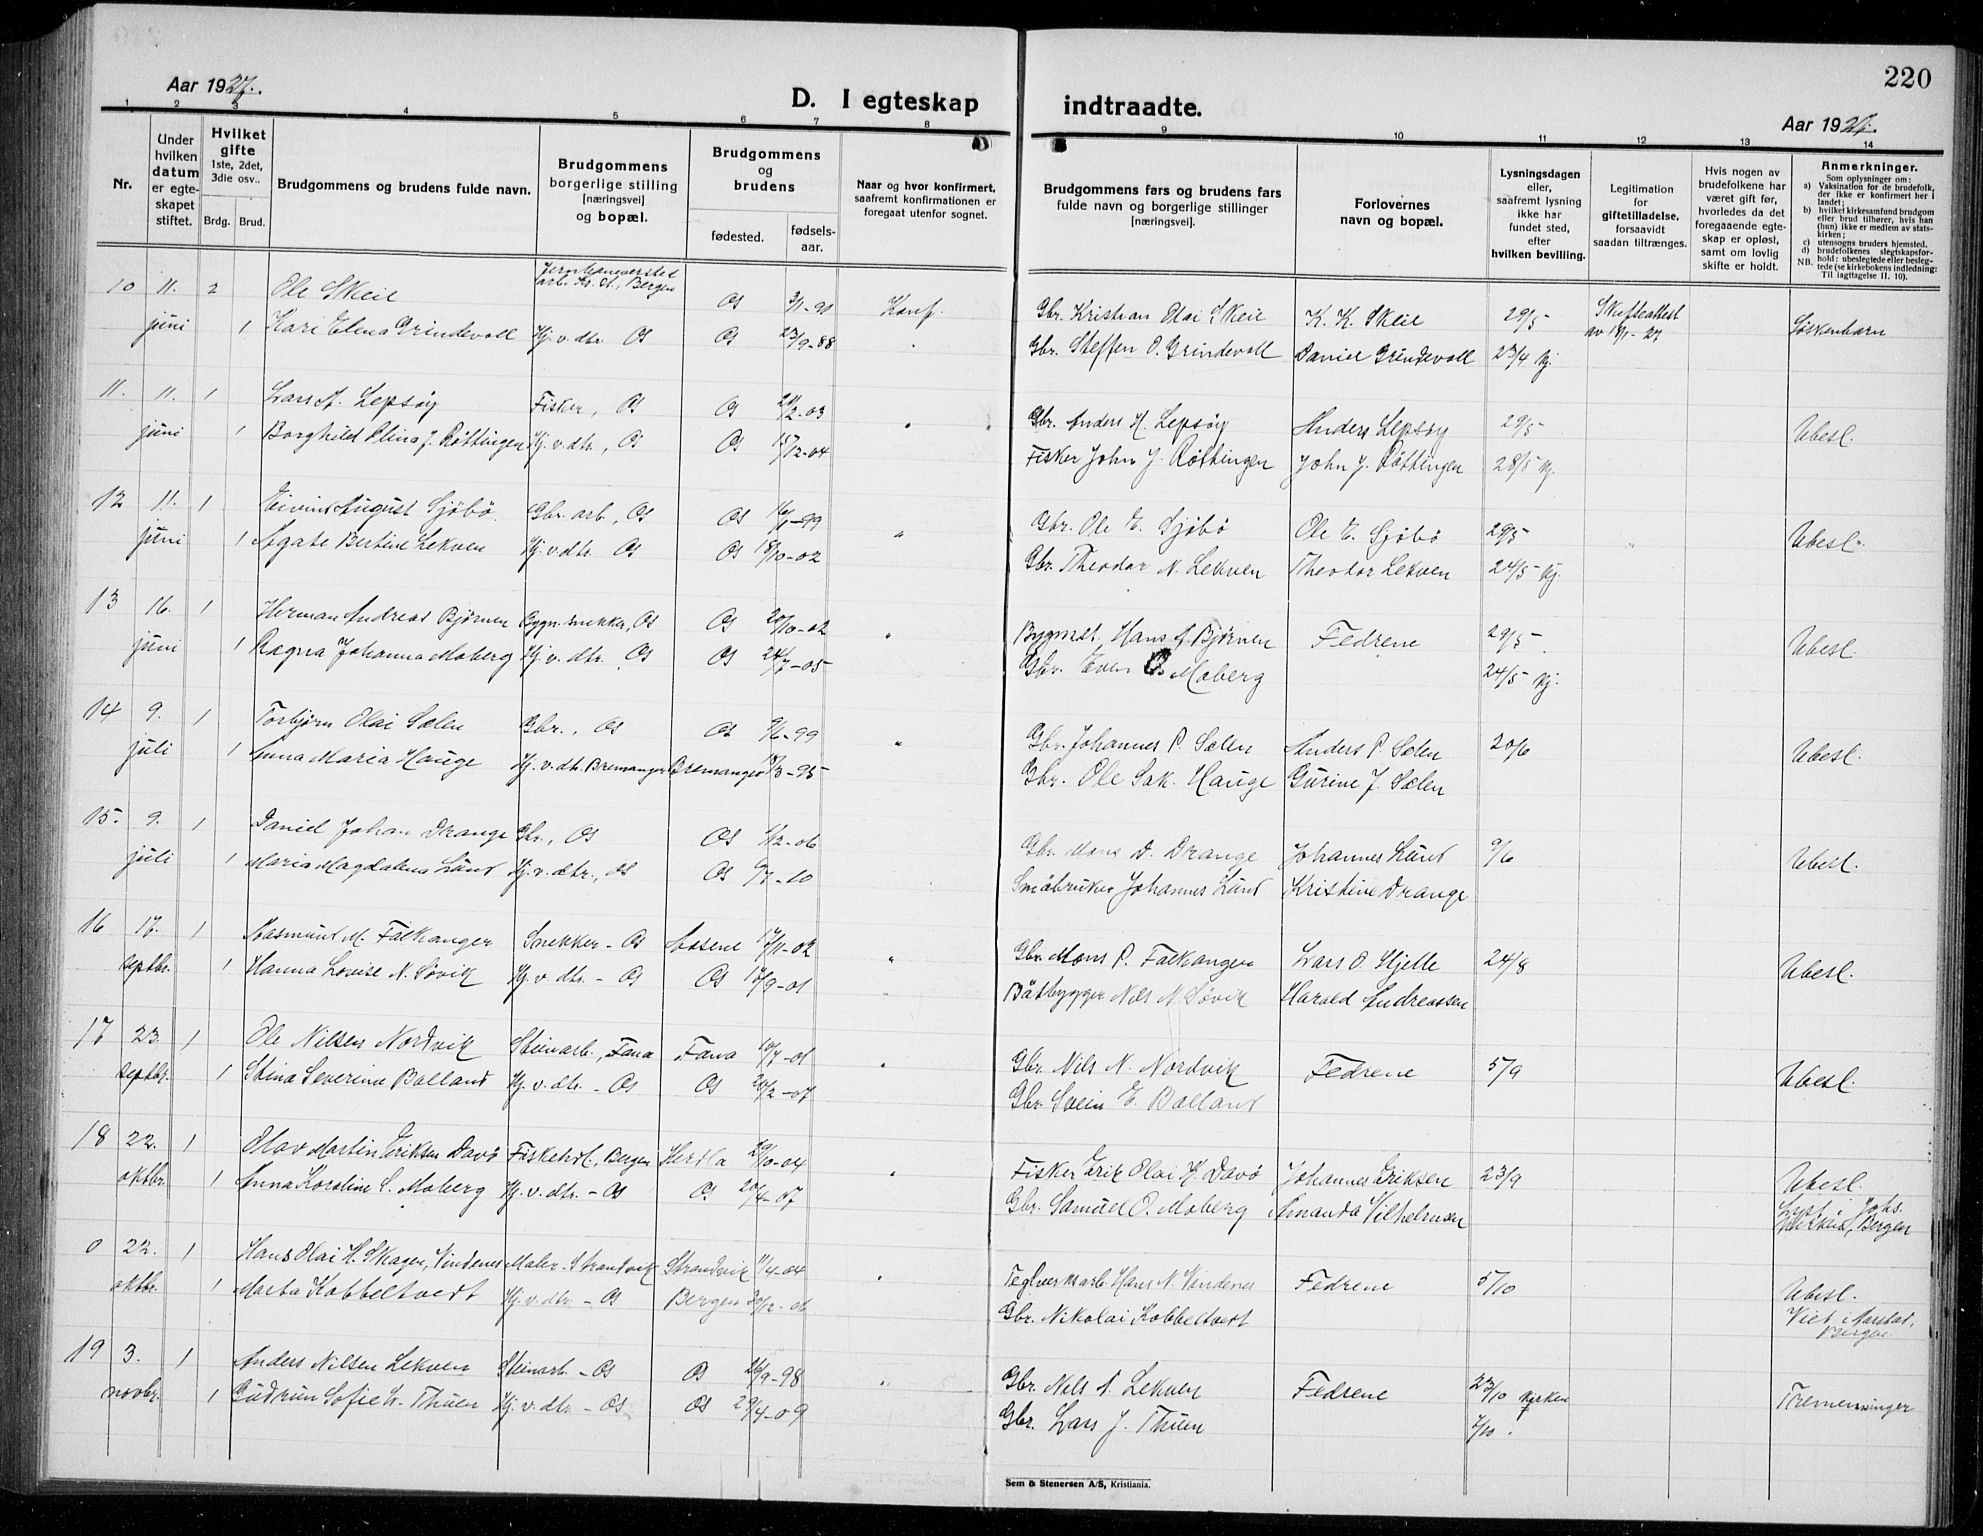 220
Aar 1927.
D. I egteskap indtraadte.
Aar 1927.
1 2 3 4 5 6 7 8 9 10 11 12 13 14
Nr.
Under hvilken datum er egteskapet stiftet.
Hvilket gifte 1ste, 2det, 3die osv..
Brdg. Brud.
Brudgommens og brudens fulde navn.
Brudgommens borgerlige stilling [næringsvei] og bopæl.
Brudgommens og brudens
fødested. fødselsaar.
Naar og hvor konfirmert, saafremt konfirmationen er foregaat utenfor sognet.
Brudgommens fars og brudens fars fulde navn og borgerlige stillinger [næringsvei].
Forlovernes navn og bopæl.
Lysningsdagen eller, saafremt lysning ikke har fundet sted, efter hvilken bevilling.
Legitimation for giftetilladelse, forsaavidt saadan tiltrænges.
Hvis nogen av brudefolkene har været gift før, hvorledes da det foregaaende egteskap er opløst, samt om lovlig skifte er holdt.
Anmerkninger.
Som oplysninger om:
a) Vaksination for de brudefolk, der ikke er konfirmert her i landet;
b) hvilket kirkesamfund brudgom eller brud tilhører, hvis han (hun) ikke er medlem av statskirken;
c) utensogns bruders hjemsted.
d) brudefolkenes slegtskapsforhold: ubeslegtede eller beslegtede (se kirkebokens indledning:
NB. Til iagttagelse II. 10).
10 11. 2 Ole Skeie Bergen Os 3/1-90 Konf. Gbr. Kristian Olai Skeie K. K. Skeie 29/5 Skifteattest
juni 1 Kari Elena Grindevoll Hj. v. dtr. Os Os 23/9-88 Gbr. Steffen O. Grindevoll Daniel Grindevoll 23/4 kj. av 18/1-27 Søskenbarn
11. 11. 1 Lars A. Lepsøy Fisker, Os Os 2-03 " Gbr. Anders H. Lepsøy Anders Lepsøy 29/5
juni 1 Borghild Olina J. Røttingen Hj. v. dtr., Os Os 15/12-04 Fisker John J. Røttingen John J. Røttingen 28/5 kj. Ubesl.
12 11. 1 Eivind August Sjøbø Gbr. arb., Os Os 1-99 " Gbr. Ole E. Sjøbø Ole E. Sjøbø 29/5
juni 1 Agate Bertine Lekven Hj. v. dtr. Os Os 18/10-02 Gbr. Theodor N. Lekven Theodor Lekven 24/5 kj. Ubesl.
13 16. 1 Herman Andreas Bjørnen Bygn. snekker, Os Os 20/10-02 " Bygmst. Hans A. Bjørnen Fedrene 29/5
juni 1 Ragna Johanna Moberg Hj. v. dtr. Os Os 24/7-05 Gbr. Even O. Moberg 24/5 kj. Ubesl.
14 9. 1 Torbjørn Olai Sælen Gbr., Os Os 9/6-99 " Gbr. Johannes P. Sælen Anders P. Sælen 20/6
juli 1 Anna Maria Hauge Hj. v. dtr. Bremanger Bremanger 18/3-95 Gbr. Ole Sak. Hauge Gurine J. Sælen Ubesl.
15. 9. 1 Daniel Johan Drange Gbr., Os Os 1/12-06 Gbr. Mons D. Drange Johannes Lund 9/6
juli 1 Maria Magdalena Lund Hj. v. dtr., Os Os 6/7-10 Småbruker Johannes Lund Kristine Drange Ubesl.
16 17. 1 Rasmund M. Falkanger Snekker - Os Aasene 17/11-02 " Gbr. Mons P. Falkanger Lars O. Hjelle 24/8
septbr. 1 Hanna Lovise N. Søvik Hj. v. dtr. - Os Os 17/9-01 " Båtbygger Nils N. Søvik Harald Andreassen Ubesl.
17 23. 1 Ole Nilsen Nordvik Steinarb., Fana Fana 10/7-01 " Gbr. Nils N. Nordvik Fedrene 5/9
septbr. 1 Stina Severine Balland Hj. v. dtr. - Os Os 20/2-07 Gbr. Svein E. Balland Ubesl.
18 22. 1 Olav Martin Eriksen Davø Fiskehdl., Bergen Herdla 29/10-04 " Fisker Erik Olai K. Davø Johannes Eriksen 23/9
oktbr. 1 Anna Karoline S. Moberg Hj. v. dtr. - Os Os 20/4-07 Gbr. Samuel O. Moberg Amanda Vilhelmsen Ubesl. Lyst i Johs. kirken, Bergen
0 22. 1 Hans Olai H. Skager, Vindenes Maler - Strandvik Strandvik 11/4-04 " Teglverksarb. Hans N. Vindenes Fedrene 5/10
oktbr. 1 Marta Kobbeltvedt Hj. v. dtr. - Os Bergen 30/12-06 Gbr. Nikolai Kobbeltvedt Ubesl. Viet i Aarstad, Bergen
19 3. 1 Anders Nilsen Lekven Steinarb - Os Os 26/9-98 " Gbr. Nils A. Lekven Fedrene 23/10 kirken
novbr. 1 Gudrun Sofie L. Thuen Hj. v. dtr. - Os Os 29/4-09 Gbr. Lars J. Thuen 7/10. Tremenninger
Sem & Stenersen A/S, Kristiania.